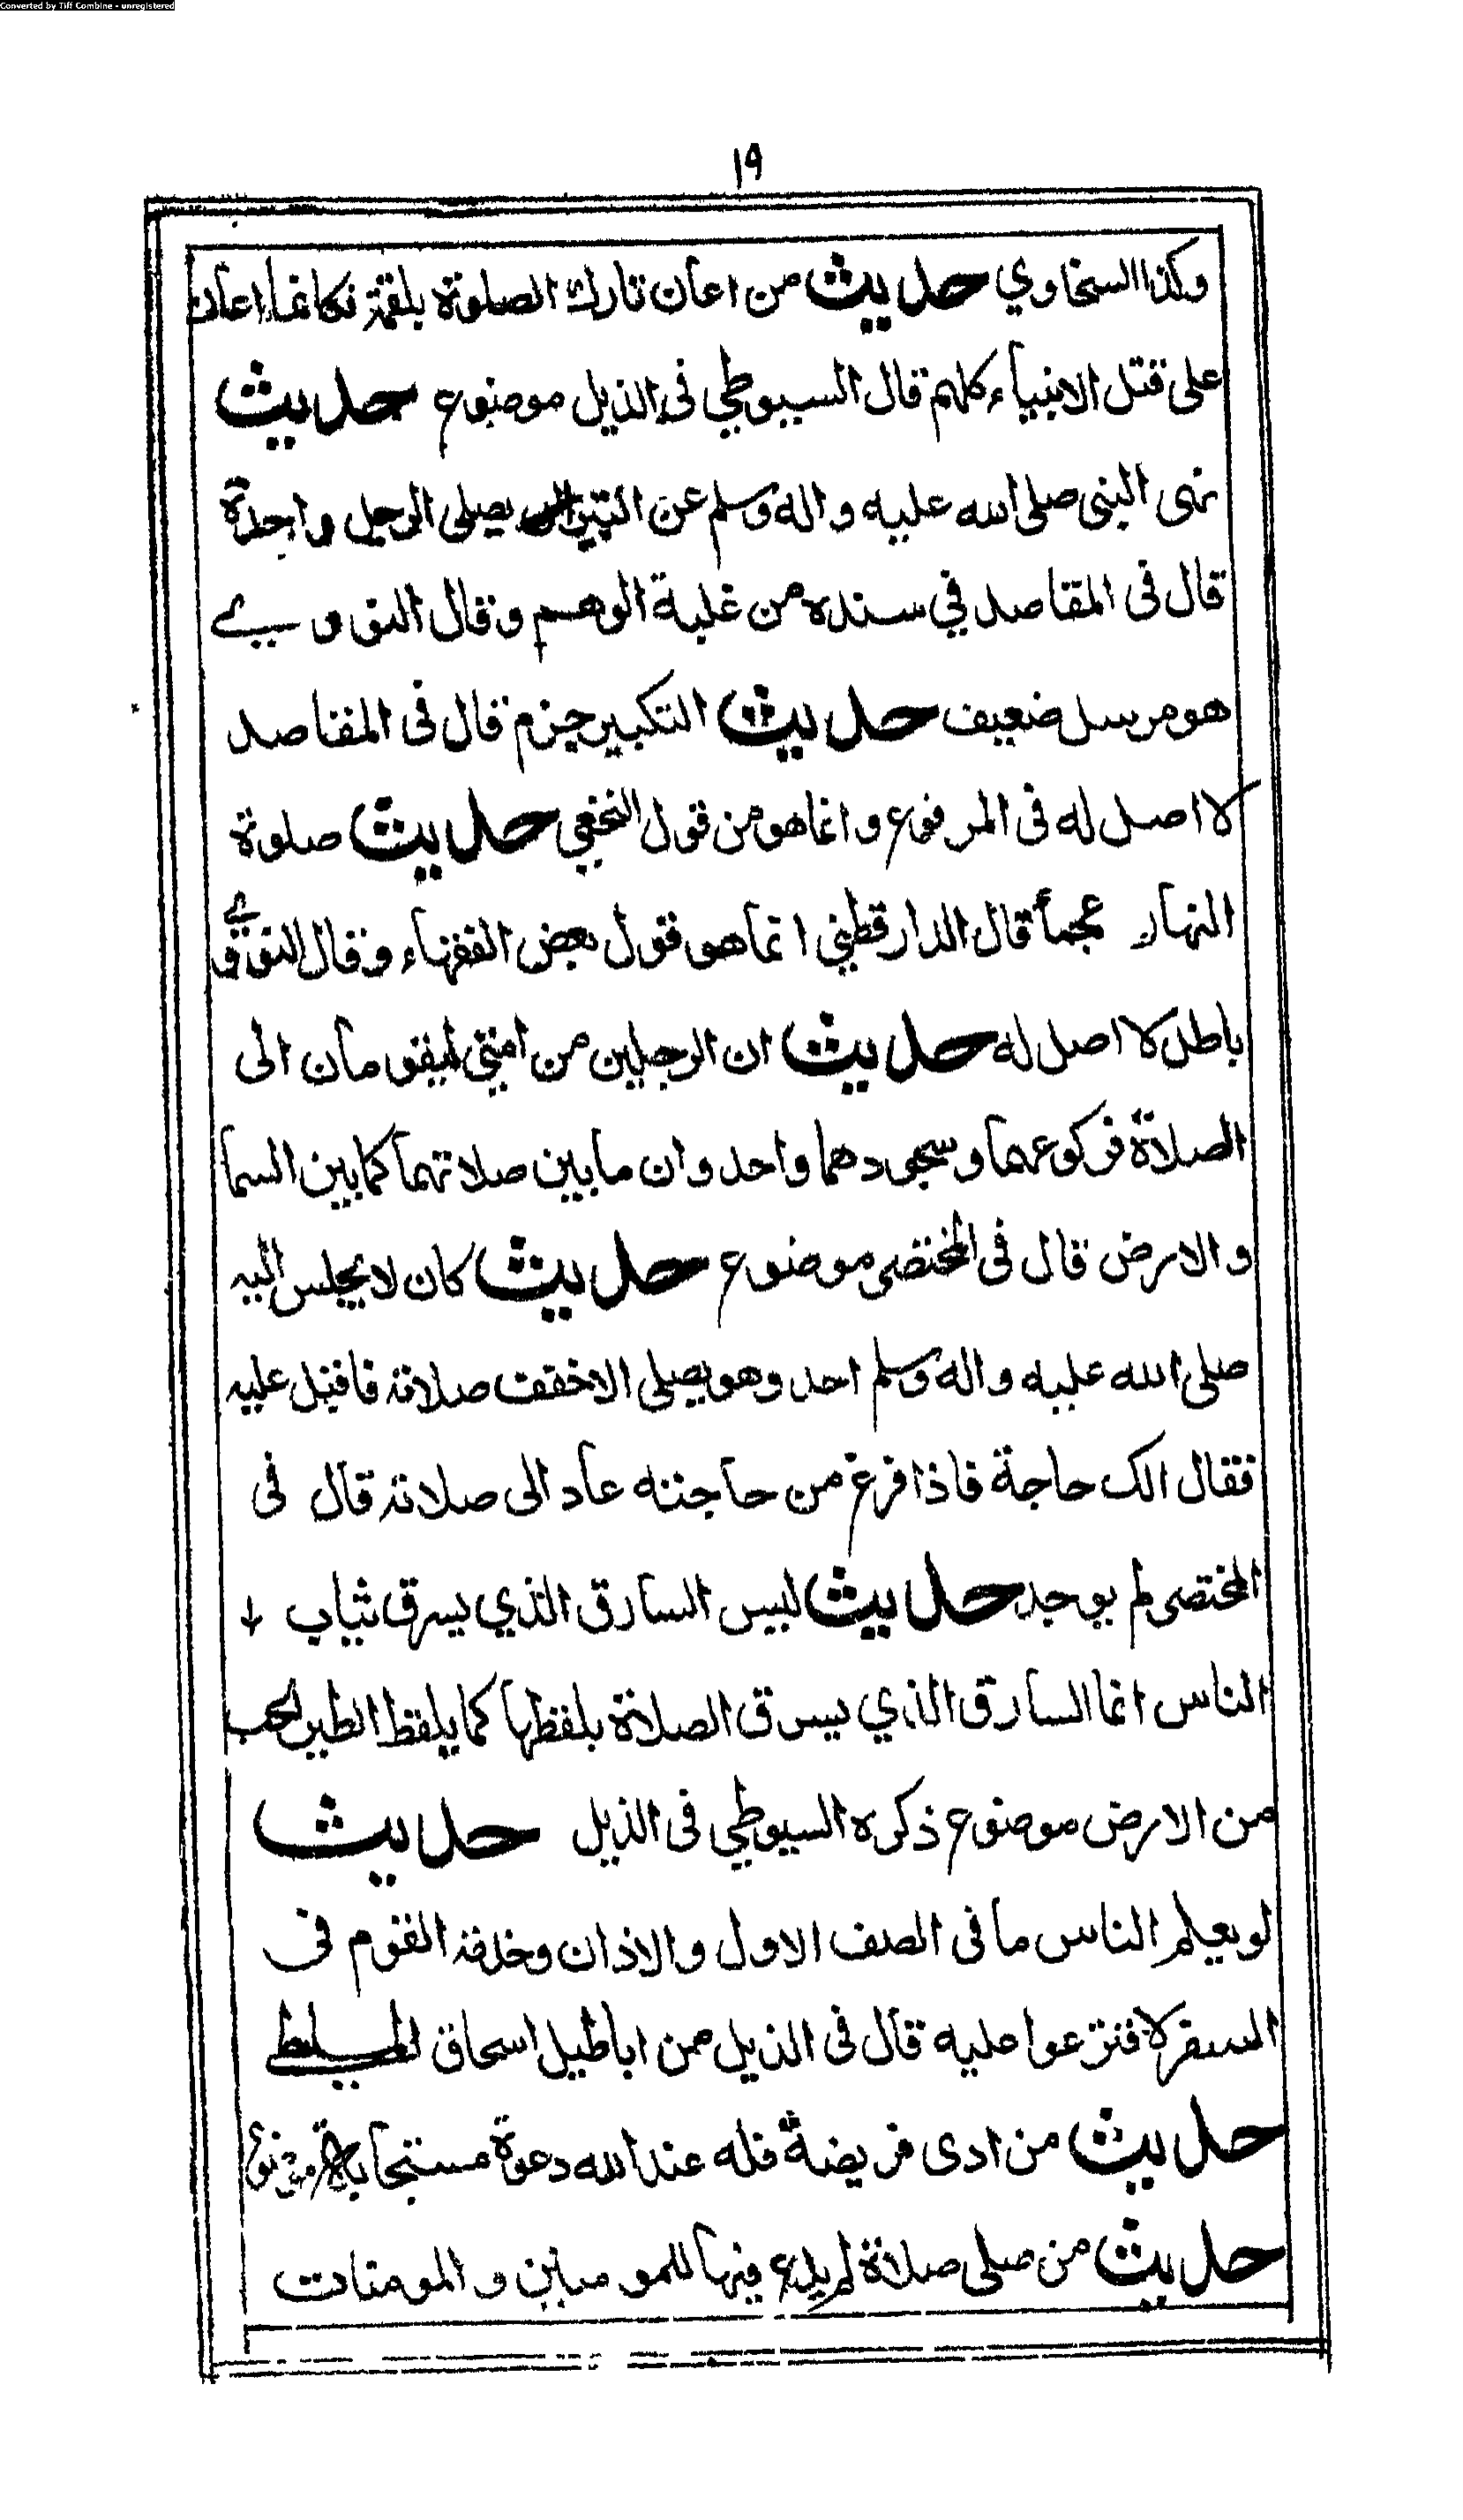 Converted by Tiff Combine - unregistered
١٩
وكذا السخاوي حديث من اعان تارك الصلوة بلقمة فكانما اعان
على قتل الانبياء كلهم قال السيوطي فى الذيل موضوع حديث
نهى النبى صلى الله عليه واله وسلم عن يصلى الرجل واحدة
قال فى المقاصد في سنده من غلبة الوهم وقال النووي
هو مرسل ضعيف حديث التكبير جزم قال فى المقاصد
لا اصل له فى المرفوع وانما هو من قول النخعي حديث صلوة
النهار عجمأ قال الدارقطني انما هو قول بعض الفقهاء وقال النووي
باطل لا اصل له حديث ان الرجلين من امتي ليقومان الى
الصلاة فركوعهما وسجودهما واحد وان ما بين صلاتهما كما بين السما
والارض قال فى المختصر موضوع حديث كان لا يجلس اليه
صلى الله عليه واله وسلم احد وهو يصلى الا خفف صلاته فاقبل عليه
فقال الك حاجة فاذا فرغ من حاجته عاد الى صلاته قال فى
المختصر لم يوجد حديث ليس السارق الذي يسرق ثياب
الناس انما السارق الذي يسرق الصلاة يلفظها كما يلفظ الطير الحب
من الارض موضوع ذكره السيوطي فى الذيل حديث
لو يعلم الناس ما فى الصف الاول والاذان وخدمة القوم فى
السفر لاقترعوا عليه قال فى الذيل من اباطيل اسحاق الملطي
حديث من ادى فريضة فله عند الله دعوة مستجابة
حديث من صلى صلاة لم يدع فيها للمومنين والمومنات